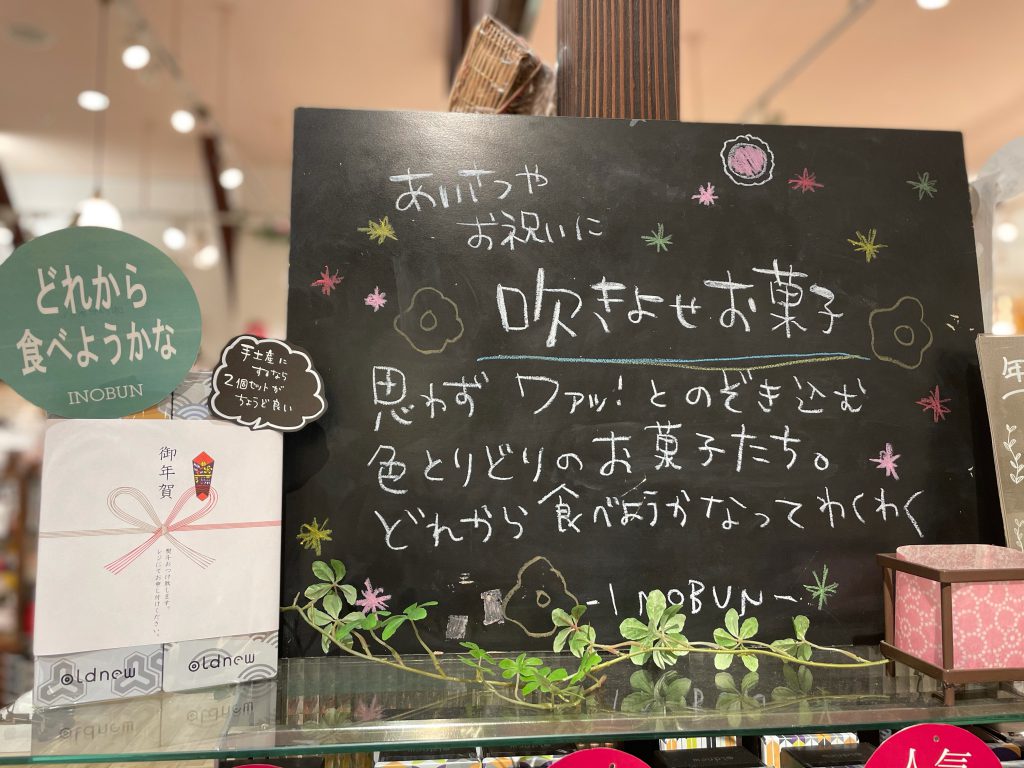 あいさつや
お祝いに
吹きよせお菓子
思わず ワァッ！とのぞき込む
色とりどりのお菓子たち。
どれから食べようかなってわくわく
-INOBUN-
どれから
食べようかな
INOBUN
手土産に
するなら
2個セットが
ちょうど良い
御年賀
熨斗おつけ致します。
レジにてお申し付けください。
oldnew
oldnew
年
人気